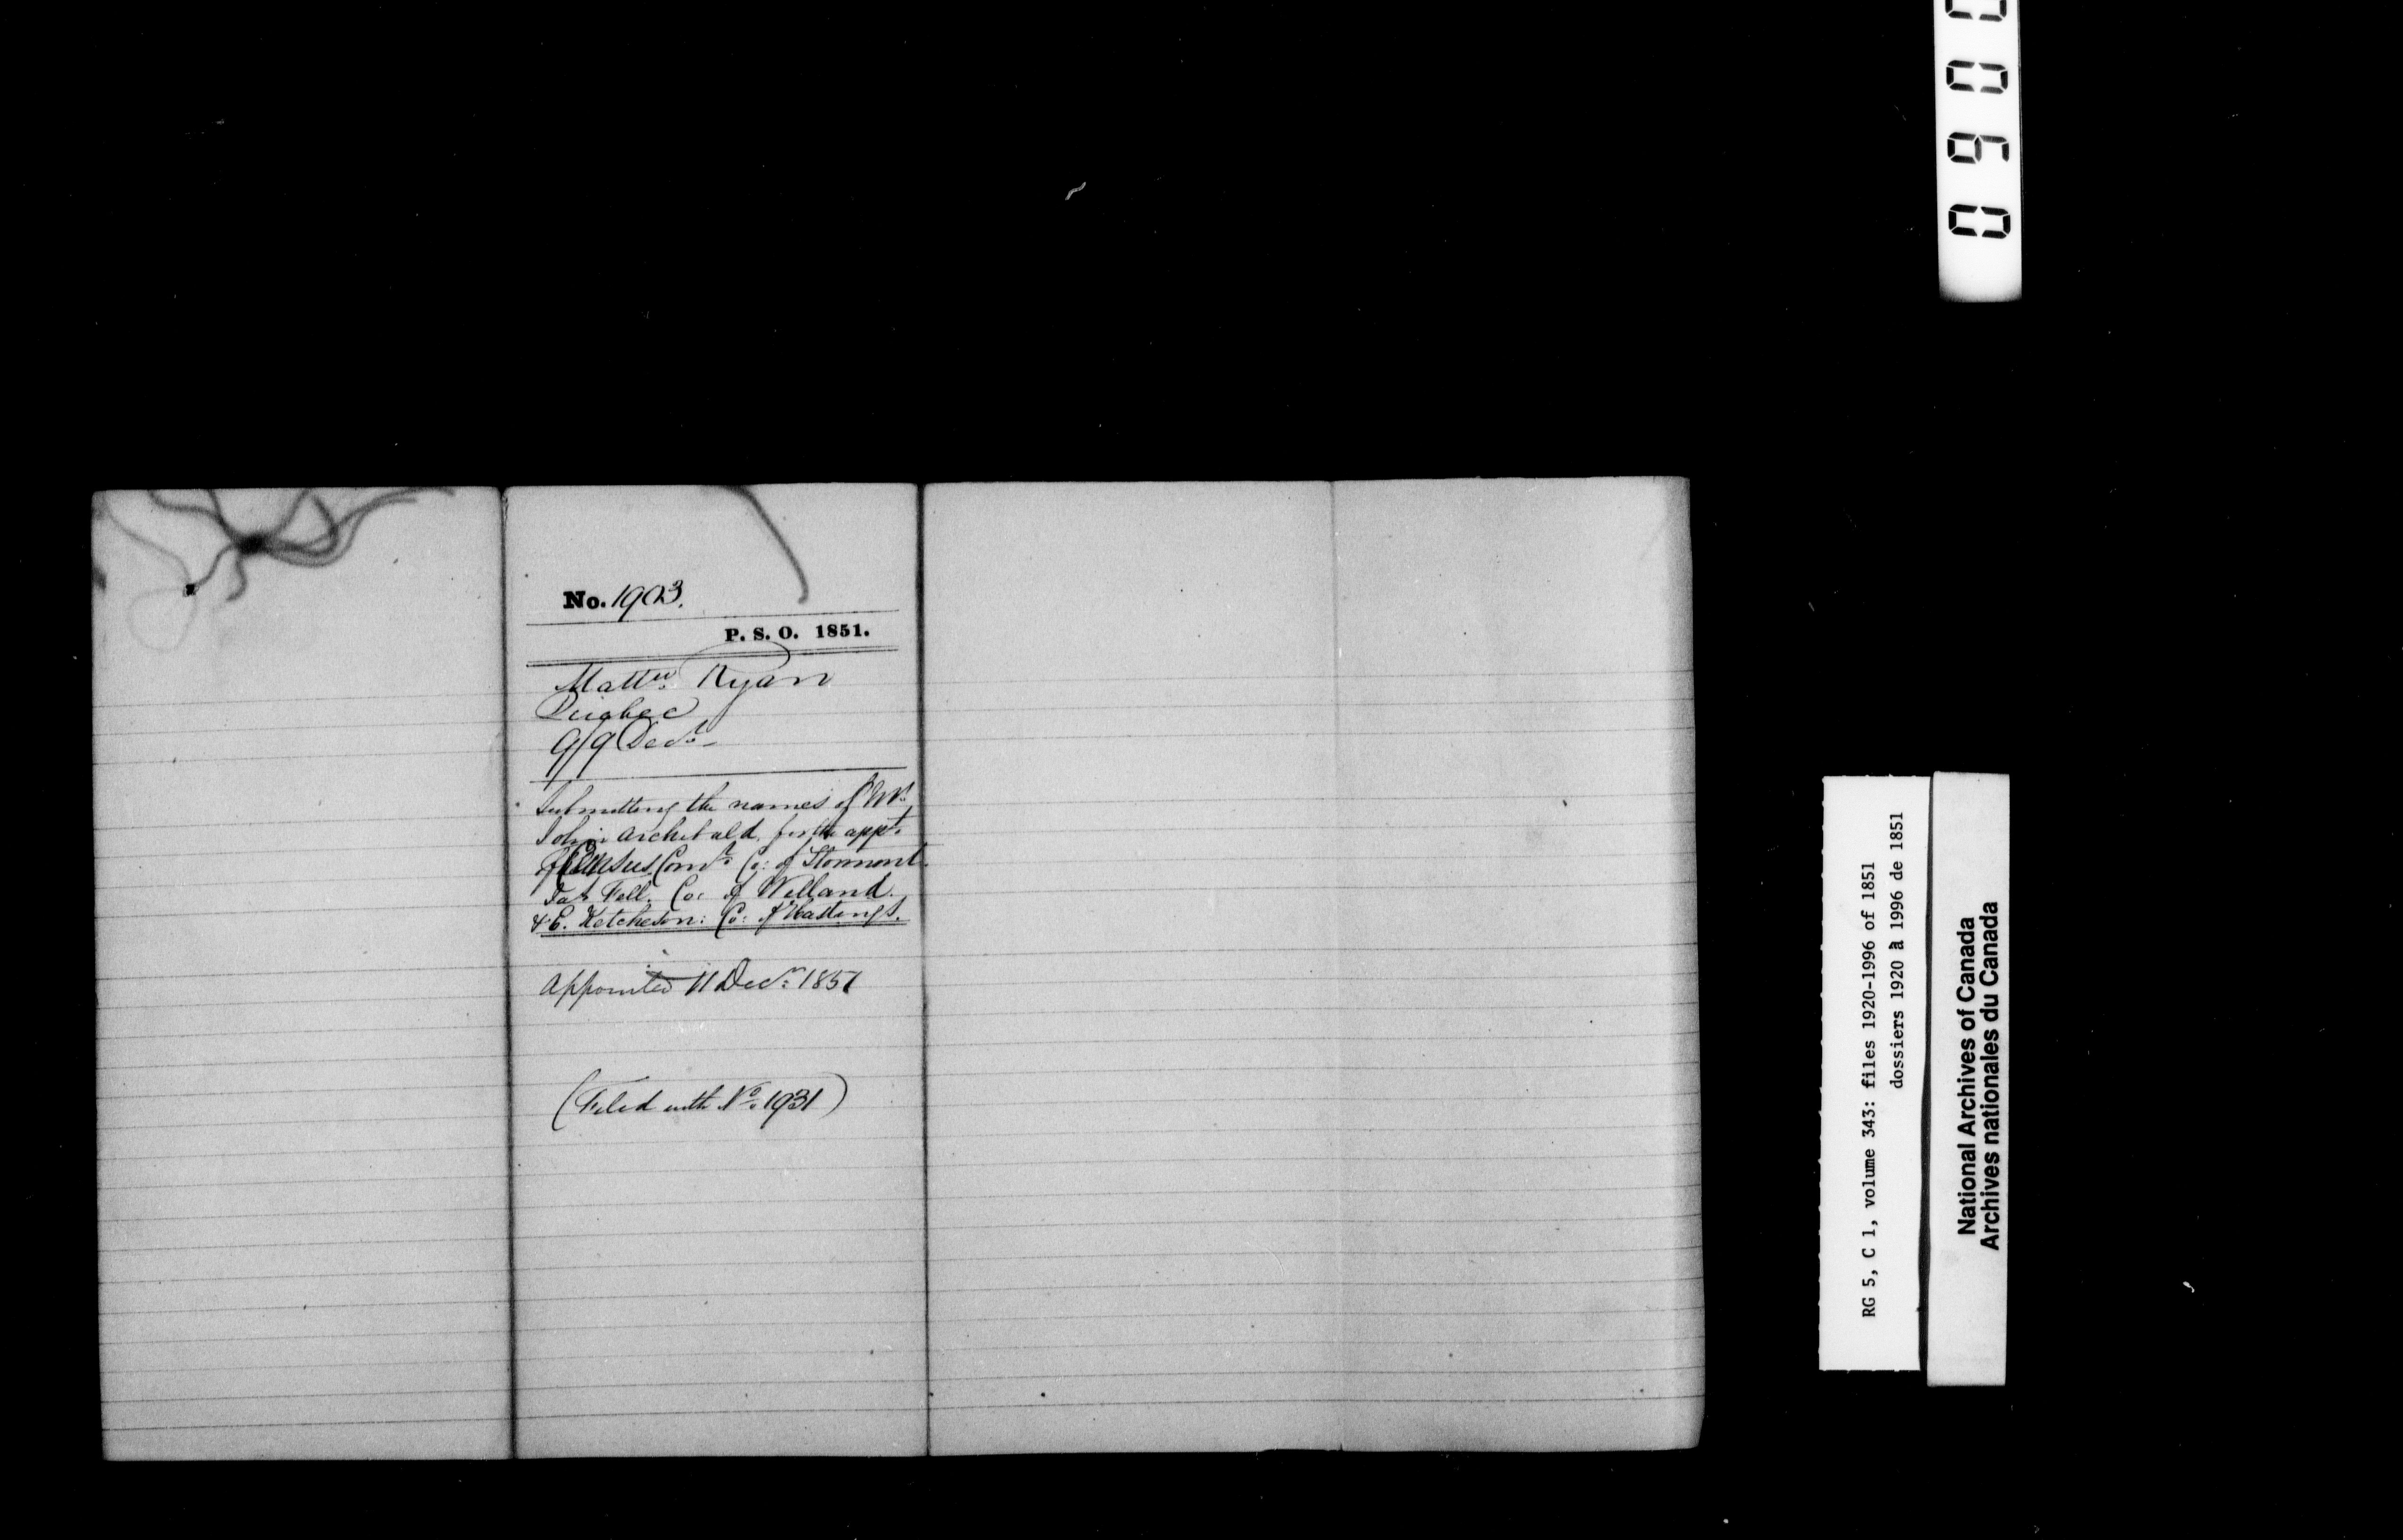 No. 1903.
P. S. O. 1851.
Mattw Ryan
Quebec
9/9 Decr
Submitting the names of Mr.
John Archibald for the appt.
of Census Comr. Co: of Stormont
Jas Fell. Co: of Welland.
& E. Ketcheson: Co: of Hastings.
Appointed 11 Decr: 1851
(Filed with No. 1931)
RG 5, C 1, volume 343: files 1920-1996 of 1851
dossiers 1920 à 1996 de 1851
National Archives of Canada
Archives nationales du Canada